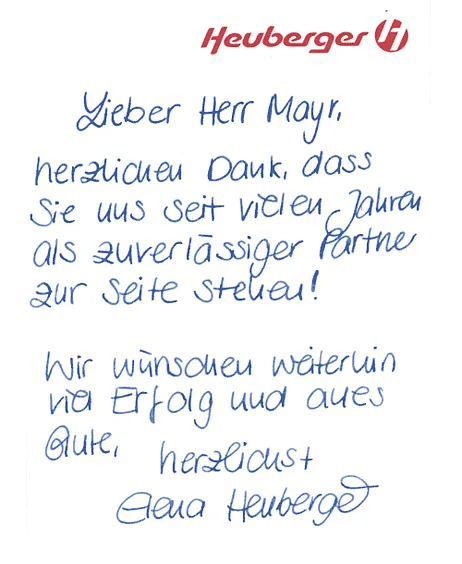 Heuberger
Lieber Herr Mayr,
herzlichen Dank, dass
Sie uns seit vielen Jahren
als zuverlässiger Partner
zur Seite stehen!
Wir wünschen weiterhin
viel Erfolg und alles
Gute,
herzlichst
Elena Heuberger